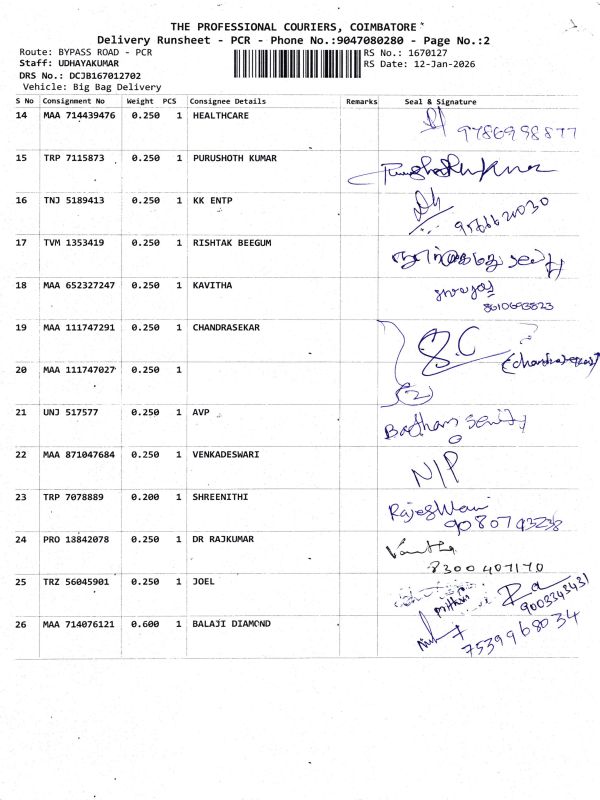 THE PROFESSIONAL COURIERS, COIMBATORE
Delivery Runsheet - PCR - Phone No.:9047080280 - Page No.:2
Route: BYPASS ROAD - PCR
RS No.: 1670127
Staff: UDHAYAKUMAR
RS Date: 12-Jan-2026
DRS No.: DCJB167012702
Vehicle: Big Bag Delivery
S No Consignment No Weight PCS Consignee Details Remarks Seal & Signature
14 MAA 714439476 0.250 1 HEALTHCARE
9786998877
15 TRP 7115873 0.250 1 PURUSHOTH KUMAR
16 TNJ 5189413 0.250 1 KK ENTP
9566620030
17 TVM 1353419 0.250 1 RISHTAK BEEGUM
18 MAA 652327247 0.250 1 KAVITHA
8610693823
19 MAA 111747291 0.250 1 CHANDRASEKAR
S.C
20 MAA 111747027 0.250 1
(2)
21 UNJ 517577 0.250 1 AVP
22 MAA 871047684 0.250 1 VENKADESWARI
N/P
23 TRP 7078889 0.200 1 SHREENITHI
9080743238
24 PRO 18842078 0.250 1 DR RAJKUMAR
8300407170
25 TRZ 56045901 0.250 1 JOEL
9003343431
26 MAA 714076121 0.600 1 BALAJI DIAMOND
7539968034